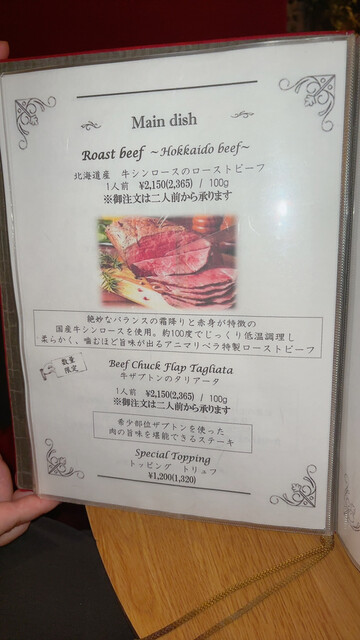 Main dish
Roast beef ~Hokkaido beef~
北海道産 牛シンロースのローストビーフ
1人前 ¥2,150(2,365) / 100g
※御注文は二人前から承ります
絶妙なバランスの霜降りと赤身が特徴の
国産牛シンロースを使用。約100度でじっくり低温調理し
柔らかく、噛むほど旨味が出るアニマリベラ特製ローストビーフ
数量
限定
Beef Chuck Flap Tagliata
牛ザブトンのタリアータ
1人前 ¥2,150(2,365) / 100g
※御注文は二人前から承ります
希少部位ザブトンを使った
肉の旨味を堪能できるステーキ
Special Topping
トッピング トリュフ
¥1,200(1,320)